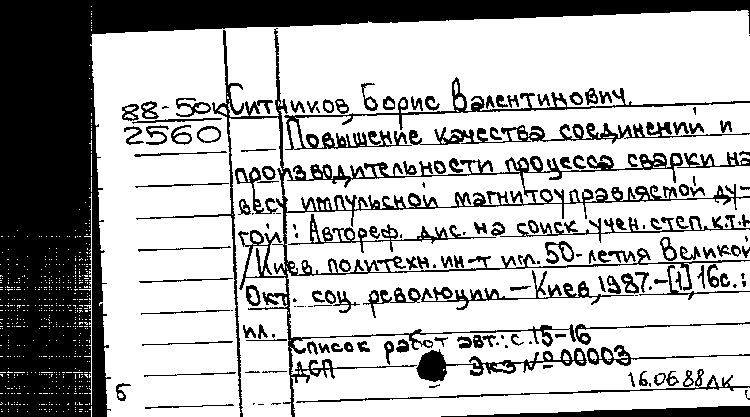 88-50к Ситников, Борис Валентинович.
2560 Повышение качества соединений и
производительности процесса сварки на
весу импульсной магнитоуправляемой ду-
гой : Автореф. дис. на соиск. учен. степ. к.т.н
/Киев. политехн. ин-т им. 50-летия Великой
Окт. соц. революции. — Киев, 1987. — [1], 16с. :
ил.
Список работ авт.: с. 15-16
ДСП Экз № 00003
16.06.88 ДК
б